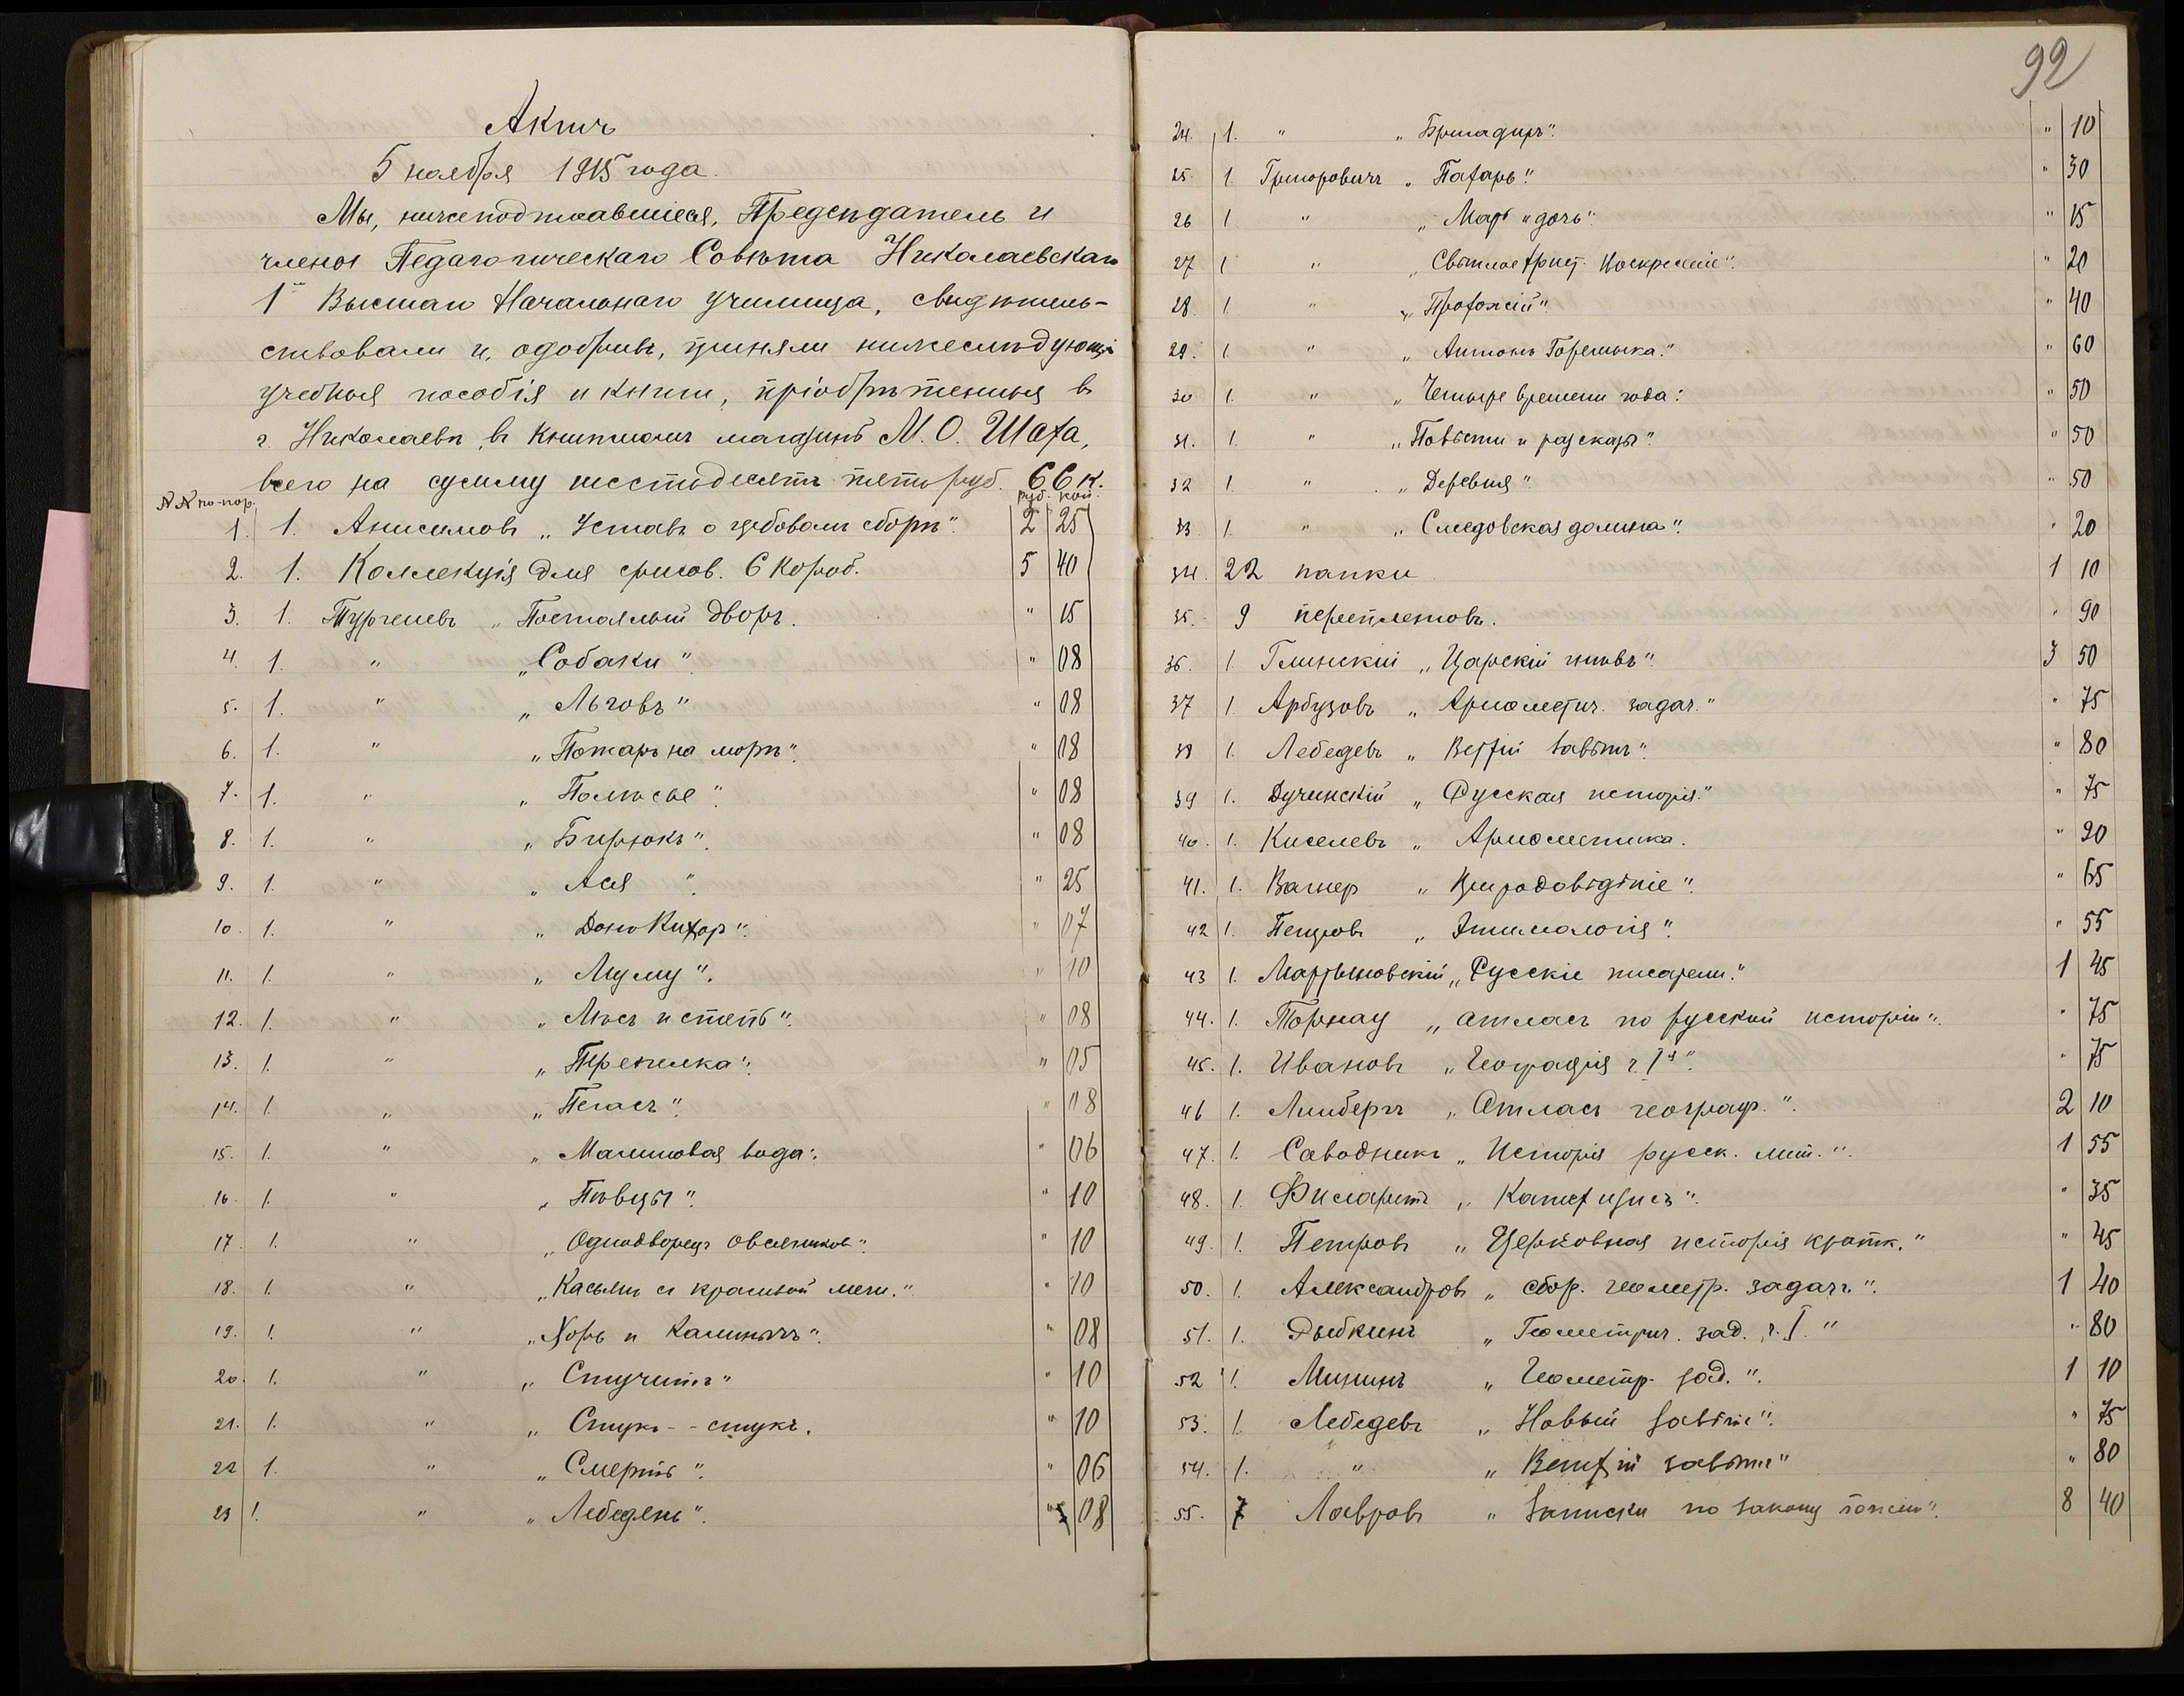 Актъ
5 ноября 1915 года.
Мы, нижеподписавшіеся, Предсѣдатель и
члены Педагогическаго Совѣта Николаевскаго
1го Высшаго Начальнаго училища, свидѣтель-
ствовали и, одобривъ, приняли нижеслѣдующія
учебныя пособія и книги, пріобрѣтенныя въ
г. Николаевѣ, въ книжномъ магазинѣ М. О. Шаха,
всего на сумму шестьдесятъ пять руб. 66 к.
№№ по-пор. руб. коп.
1. 1. Анисимовъ „Уставъ о гербовомъ сборѣ". 2 25
2. 1. Коллекція для рисов. 6 короб. 5 40
3. 1. Тургеневъ „Постоялый дворъ. " 15
4. 1. " „Собаки" " 08
5. 1. " „Льговъ" " 08
6. 1. " „Пожаръ на морѣ". " 08
7. 1. " „Полѣсье". " 08
8. 1. " „Бирюкъ". " 08
9. 1. " „Ася". " 25
10. 1. " „Донъ Кихор". " 07
11. 1. " „Муму". " 10
12. 1. " „Лѣсъ и степь". " 08
13. 1. " „Перепелка". " 05
14. 1. " „Пегасъ". " 08
15. 1. " „Малиновая вода". " 06
16. 1. " „Пѣвцы". " 10
17. 1. " „Однодворецъ Овсяниковъ". " 10
18. 1. " „Касьянъ съ красивой мечи." " 10
19. 1. " „Хорь и Калинычъ". " 08
20. 1. " „Стучитъ" " 10
21. 1. " „Стукъ - - стукъ. " 10
22 1. " „Смерть". " 06
23 1. " „Лебедянь". " 08
92
24. 1. " „Бригадиръ". " 10
25. 1. Григоровичъ „Пахарь". " 30
26 1 " „Мать и дочь". " 15
27 1 " „Свѣтлое Христ. Воскресеніе". " 20
28. 1. " „Прохожій". " 40
29. 1. " „Антонъ Горемыка." " 60
30 1. " „Четыре времени года: " 50
31. 1. " „Повѣсти и разсказы". " 50
32 1. " „Деревня". " 50
33 1. " „Смедовская долина". " 20
34. 22 папки 1 10
35. 9 переплетовъ. " 90
36. 1. Глинскій „Царскій гнѣвъ". 3 50
37 1. Арбузовъ „Ариѳметич. задач." " 75
38 1. Лебедевъ „Ветхій Завѣтъ". " 80
39 1. Дучинскій „Русская исторія." " 75
40. 1. Киселевъ „Ариѳметика. " 90
41. 1. Вагнер „Природовѣдѣніе". " 65
42 1. Петровъ „Этимологія". " 55
43 1. Мартыновскій „Русскіе писатели." 1 45
44. 1. Торнау „Атласъ по русской исторіи". " 75
45. 1. Ивановъ „Географія ч. Iя". " 75
46 1. Линбергъ „Атласъ географ.". 2 10
47. 1. Саводникъ „Исторія русск. лит.". 1 55
48. 1. Филаретъ „Катехизисъ". " 35
49. 1. Петровъ „Церковная исторія кратк." " 45
50. 1. Александровъ „сбор. геометр. задачъ". 1 40
51. 1. Рыбкинъ „Геометрич. зад. ч. I." " 80
52 1. Мининъ „Геометр. зад.". 1 10
53. 1. Лебедевъ „Новый Завѣтъ". " 75
54. 1. " „Ветхій завѣтъ" " 80
55. 7 Лавровъ „Записки по закону божію". 8 40